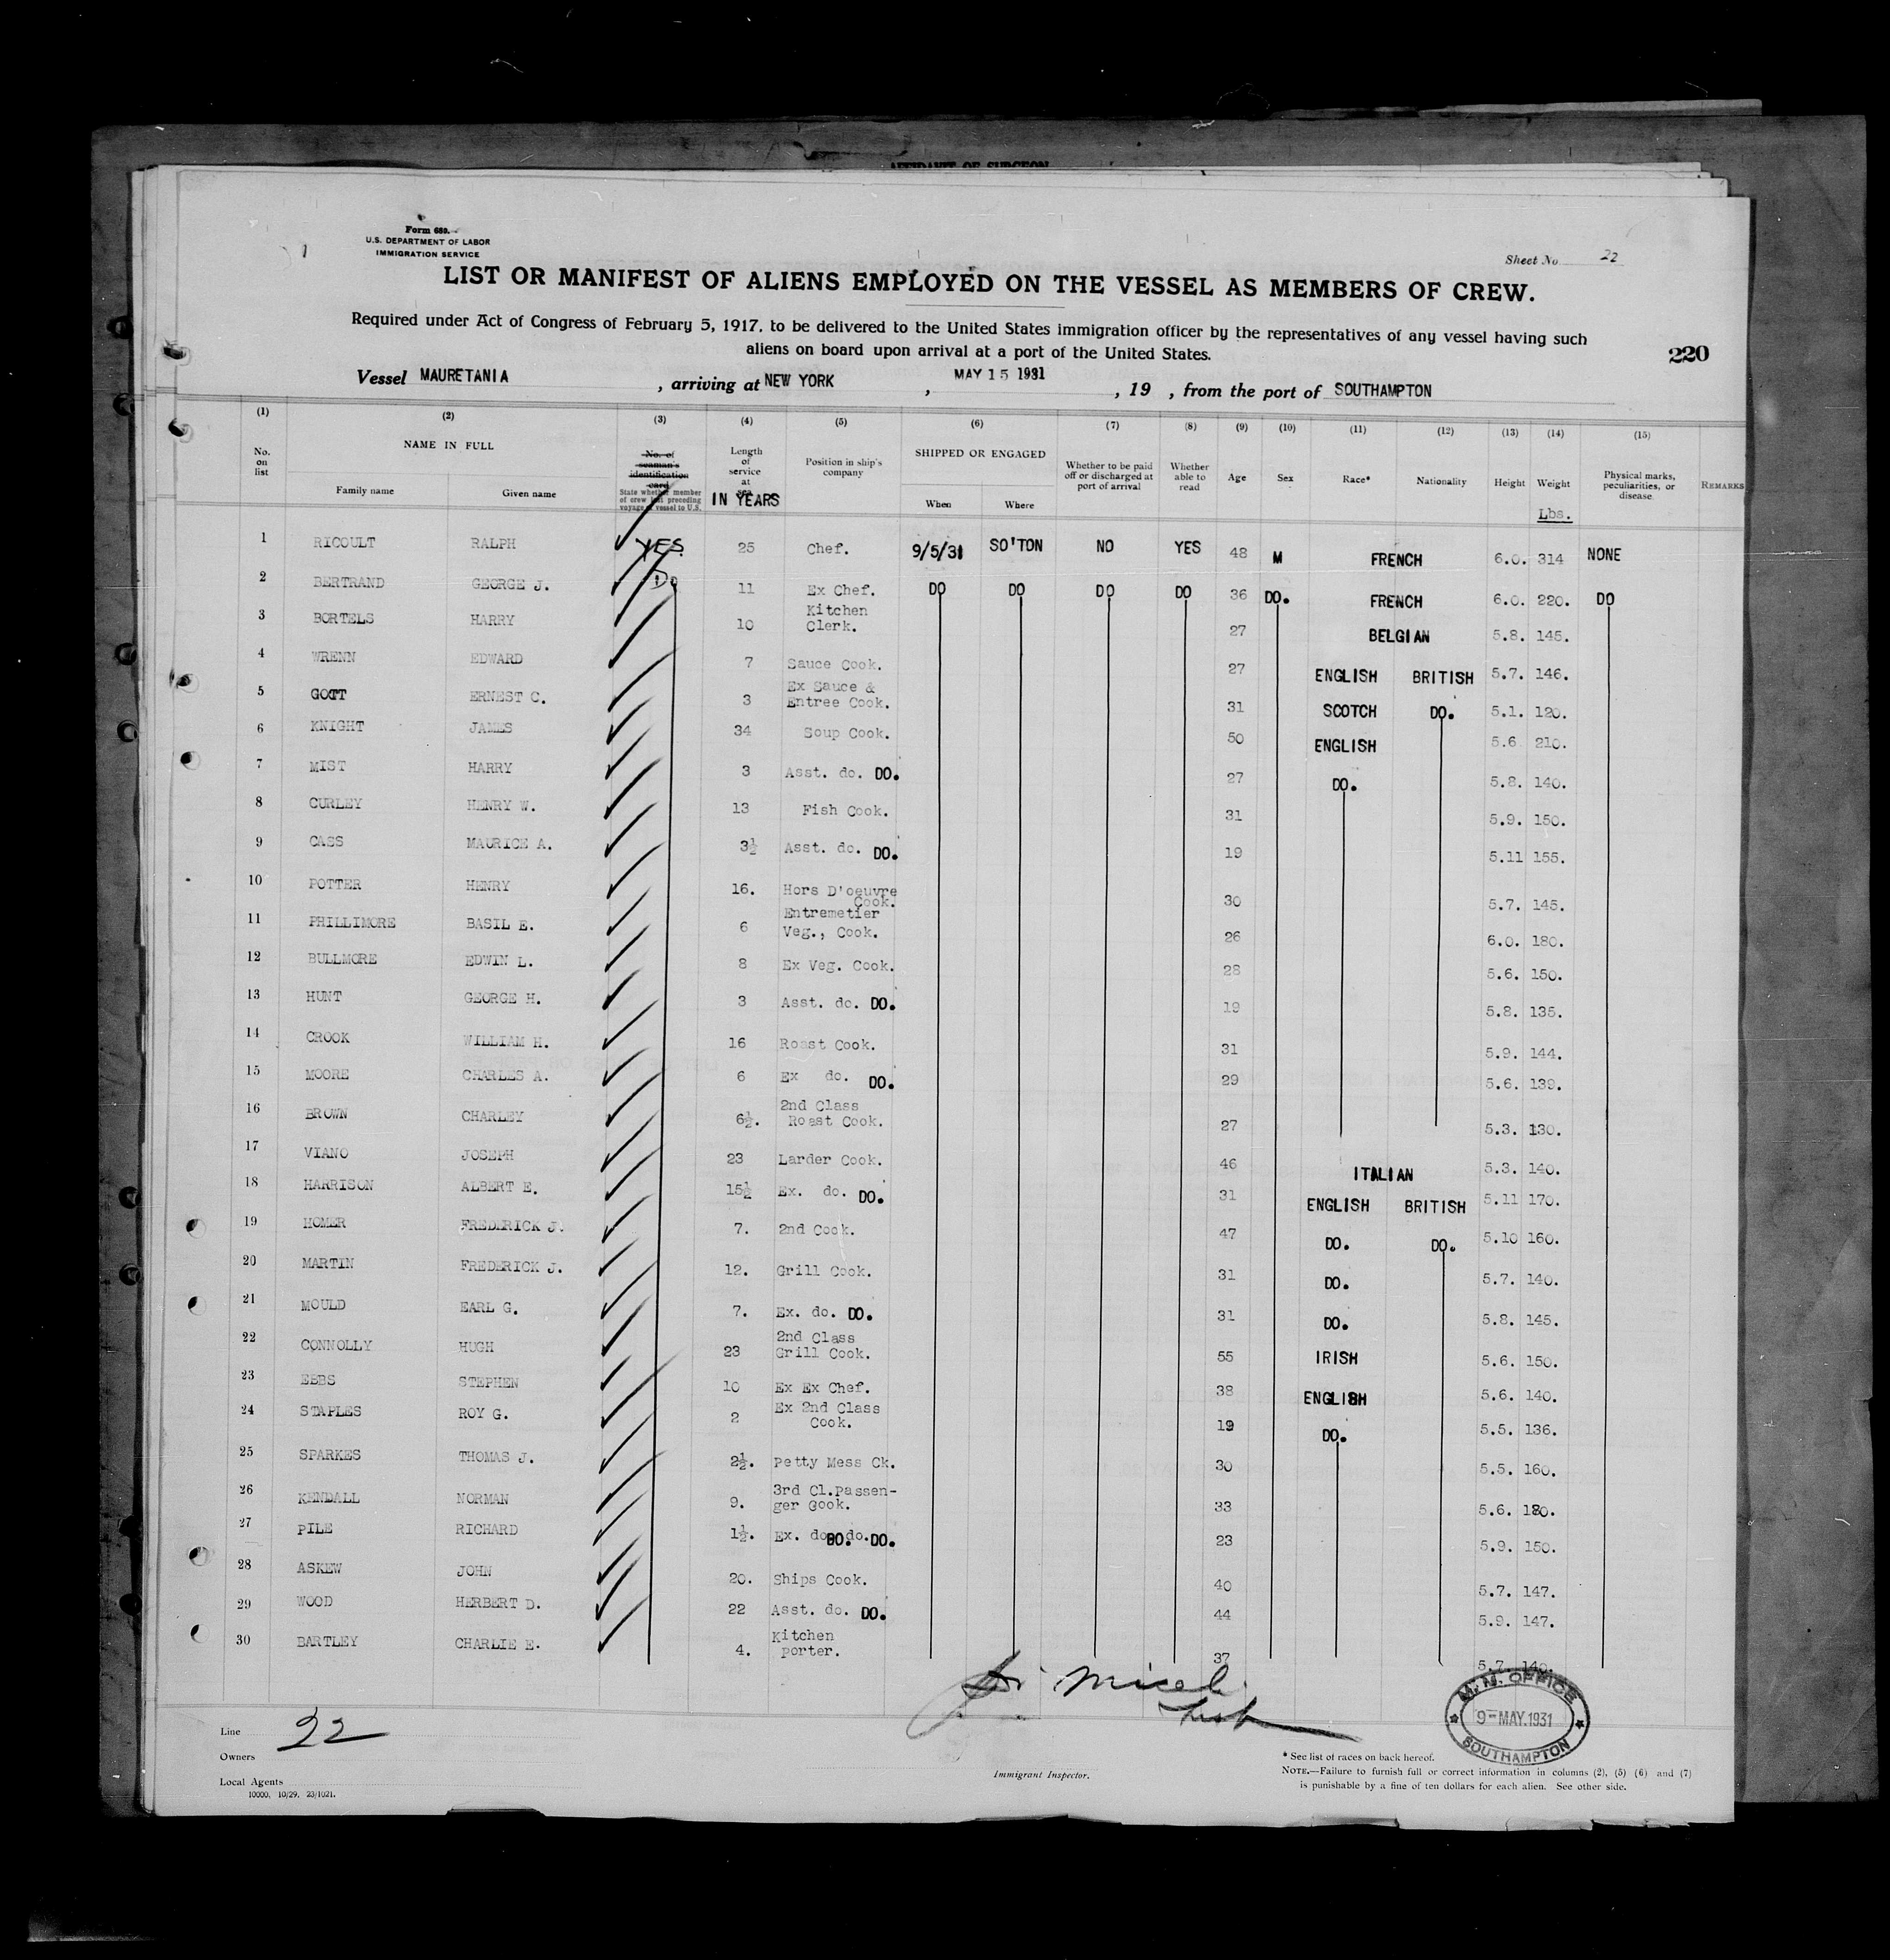 AFFIDAVIT OF SURGEON
Form 680.
U.S. DEPARTMENT OF LABOR
IMMIGRATION SERVICE
Sheet No 22
LIST OR MANIFEST OF ALIENS EMPLOYED ON THE VESSEL AS MEMBERS OF CREW.
Required under Act of Congress of February 5, 1917, to be delivered to the United States immigration officer by the representatives of any vessel having such
aliens on board upon arrival at a port of the United States.
220
Vessel MAURETANIA , arriving at NEW YORK , MAY 15 1931 , 19 , from the port of SOUTHAMPTON
(1) (2) (3) (4) (5) (6) (7) (8) (9) (10) (11) (12) (13) (14) (15)
No. on list NAME IN FULL Family name Given name No. of seaman's identification card State whether member of crew last preceding voyage of vessel to U.S. Length of service at sea IN YEARS Position in ship's company SHIPPED OR ENGAGED When Where Whether to be paid off or discharged at port of arrival Whether able to read Age Sex Race* Nationality Height Weight Lbs. Physical marks, peculiarities, or disease REMARKS
1 RICOULT RALPH YES 25 Chef. 9/5/31 SO'TON NO YES 48 M FRENCH 6.0. 314 NONE
2 BERTRAND GEORGE J. Do 11 Ex Chef. DO DO DO DO 36 DO. FRENCH 6.0. 220. DO
3 BORTELS HARRY 10 Kitchen Clerk. 27 BELGIAN 5.8. 145.
4 WRENN EDWARD 7 Sauce Cook. 27 ENGLISH BRITISH 5.7. 146.
5 GOTT ERNEST C. 3 Ex Sauce & Entree Cook. 31 SCOTCH DO. 5.1. 120.
6 KNIGHT JAMES 34 Soup Cook. 50 ENGLISH 5.6 210.
7 MIST HARRY 3 Asst. do. DO. 27 DO. 5.8. 140.
8 CURLEY HENRY W. 13 Fish Cook. 31 5.9. 150.
9 CASS MAURICE A. 3½ Asst. do. DO. 19 5.11 155.
10 POTTER HENRY 16. Hors D'oeuvre Cook. 30 5.7. 145.
11 PHILLIMORE BASIL E. 6 Entremetier Veg., Cook. 26 6.0. 180.
12 BULLMORE EDWIN L. 8 Ex Veg. Cook. 28 5.6. 150.
13 HUNT GEORGE H. 3 Asst. do. DO. 19 5.8. 135.
14 CROOK WILLIAM H. 16 Roast Cook. 31 5.9. 144.
15 MOORE CHARLES A. 6 Ex do. DO. 29 5.6. 139.
16 BROWN CHARLEY 6½. 2nd Class Roast Cook. 27 5.3. 130.
17 VIANO JOSEPH 23 Larder Cook. 46 ITALIAN 5.3. 140.
18 HARRISON ALBERT E. 15½ Ex. do. DO. 31 ENGLISH BRITISH 5.11 170.
19 HOMER FREDERICK J. 7. 2nd Cook. 47 DO. DO. 5.10 160.
20 MARTIN FREDERICK J. 12. Grill Cook. 31 DO. 5.7. 140.
21 MOULD EARL G. 7. Ex. do. DO. 31 DO. 5.8. 145.
22 CONNOLLY HUGH 23 2nd Class Grill Cook. 55 IRISH 5.6. 150.
23 EBBS STEPHEN 10 Ex Ex Chef. 38 ENGLISH 5.6. 140.
24 STAPLES ROY G. 2 Ex 2nd Class Cook. 19 DO. 5.5. 136.
25 SPARKES THOMAS J. 2½. Petty Mess Ck. 30 5.5. 160.
26 KENDALL NORMAN 9. 3rd Cl.Passen- ger Cook. 33 5.6. 180.
27 PILE RICHARD 1½. Ex. do DO. do. DO. 23 5.9. 150.
28 ASKEW JOHN 20. Ships Cook. 40 5.7. 147.
29 WOOD HERBERT D. 22 Asst. do. DO. 44 5.9. 147.
30 BARTLEY CHARLIE E. 4. Kitchen porter. 37 5.7. 140.
M.M. OFFICE
9 - MAY.1931
SOUTHAMPTON
Line 22
Owners
Local Agents
10000. 10/29. 23/1021.
Immigrant Inspector.
* See list of races on back hereof.
NOTE.—Failure to furnish full or correct information in columns (2), (5) (6) and (7)
is punishable by a fine of ten dollars for each alien. See other side.